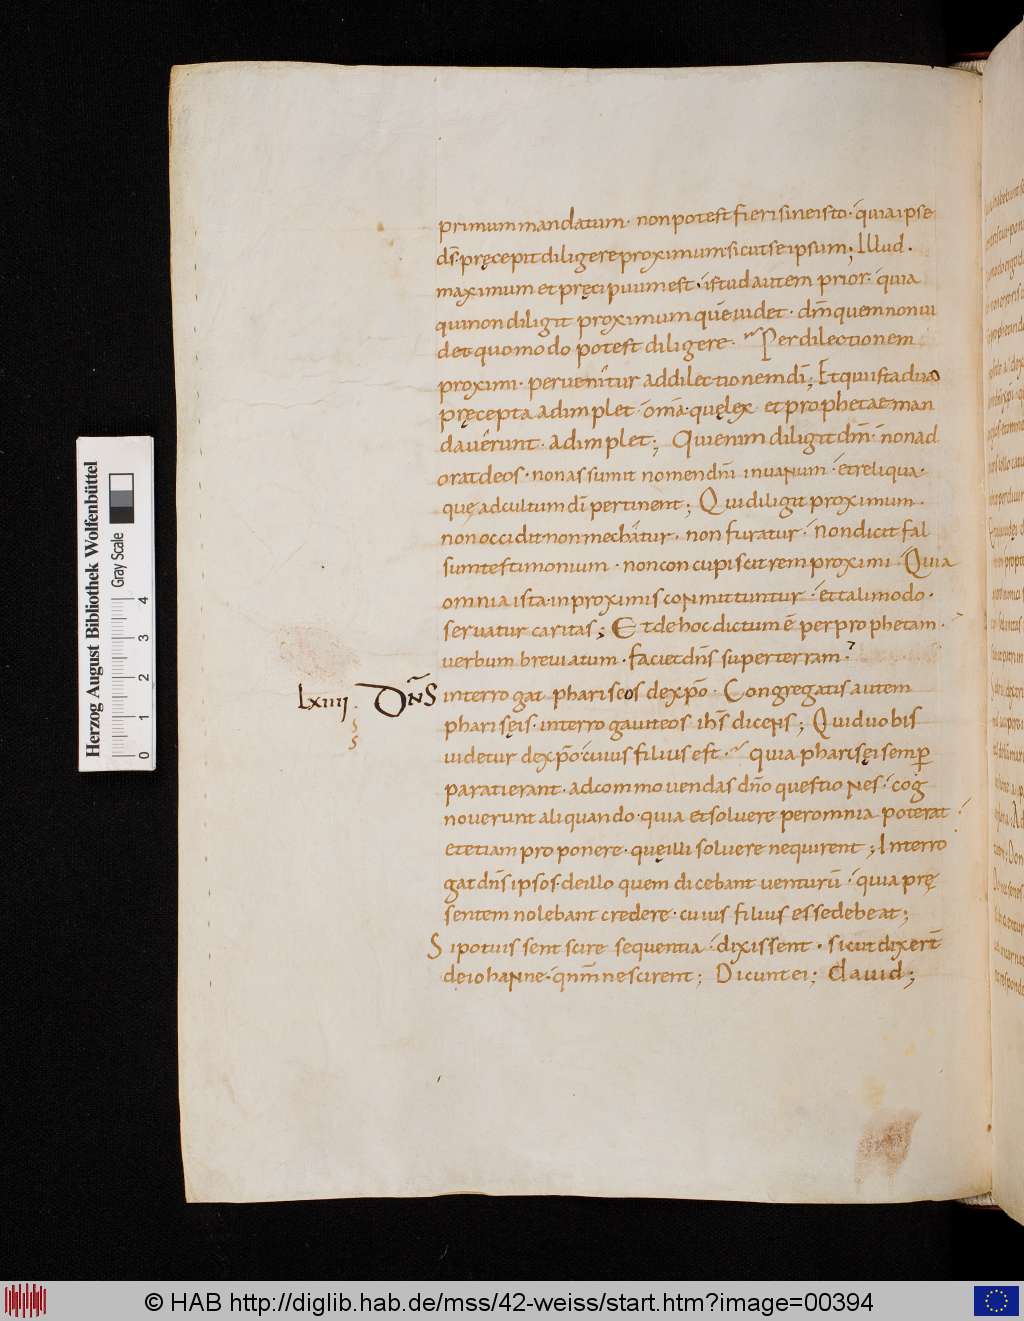 primum mandatum · non potest fieri sine isto · quia ipse
dſ· pręcepit diligere proximum · sicut se ipsum ; Illud ·
maximum et pręcipuum est · istud autem prior · quia
qui non diligit proximum quē uidet · dn̄m quem non ui
det quomodo potest diligere · Per dilectionem
proximi · peruenitur ad dilectionem dī ; Et qui ista duo
pręcepta adimplet · om̄a · quę lex · et prophetae man
dauerunt · adimplet ; Qui enim diligit dn̄m · non ad
orat deos · non assumit nomen dn̄i in uanum · et reliqua ·
quę ad cultum dī pertinent ; Qui diligit proximum ·
non occidit · non mechatur · non furatur · Non dicit fal
sum testimonium · non concupiscit rem proximi · Quia
omnia ista · in proximis committuntur · et tali modo ·
seruatur caritas ; Et de hoc dictum ē per prophetam ·
uerbum breuiatum · faciet dn̄s super terram ·
Lxiiii · DN̄S interrogat phariseos de xp̄o · Congregatis autem
pharisęis · interrogauit eos ih̄s dicens ; Quid uobis
uidetur de xp̄o cuius filius est · quia pharisęi semꝑ
parati erant · ad commouendas dn̄o questiones · cog
nouerunt aliquando · quia et soluere per omnia poterat
et etiam proponere · quę illi soluere nequirent ; Interro
gat dn̄s ipsos · de illo quem dicebant uenturū · quia prę
sentem nolebant credere · cuius filius esse debeat ;
Si potuissent scire sequentia · dixissent · sicut dixer̄t
de iohanne · qn̄m nescirent ; Dicunt ei ; dauid ;
Herzog August Bibliothek Wolfenbüttel
Gray Scale
0 1 2 3 4
© HAB http://diglib.hab.de/mss/42-weiss/start.htm?image=00394